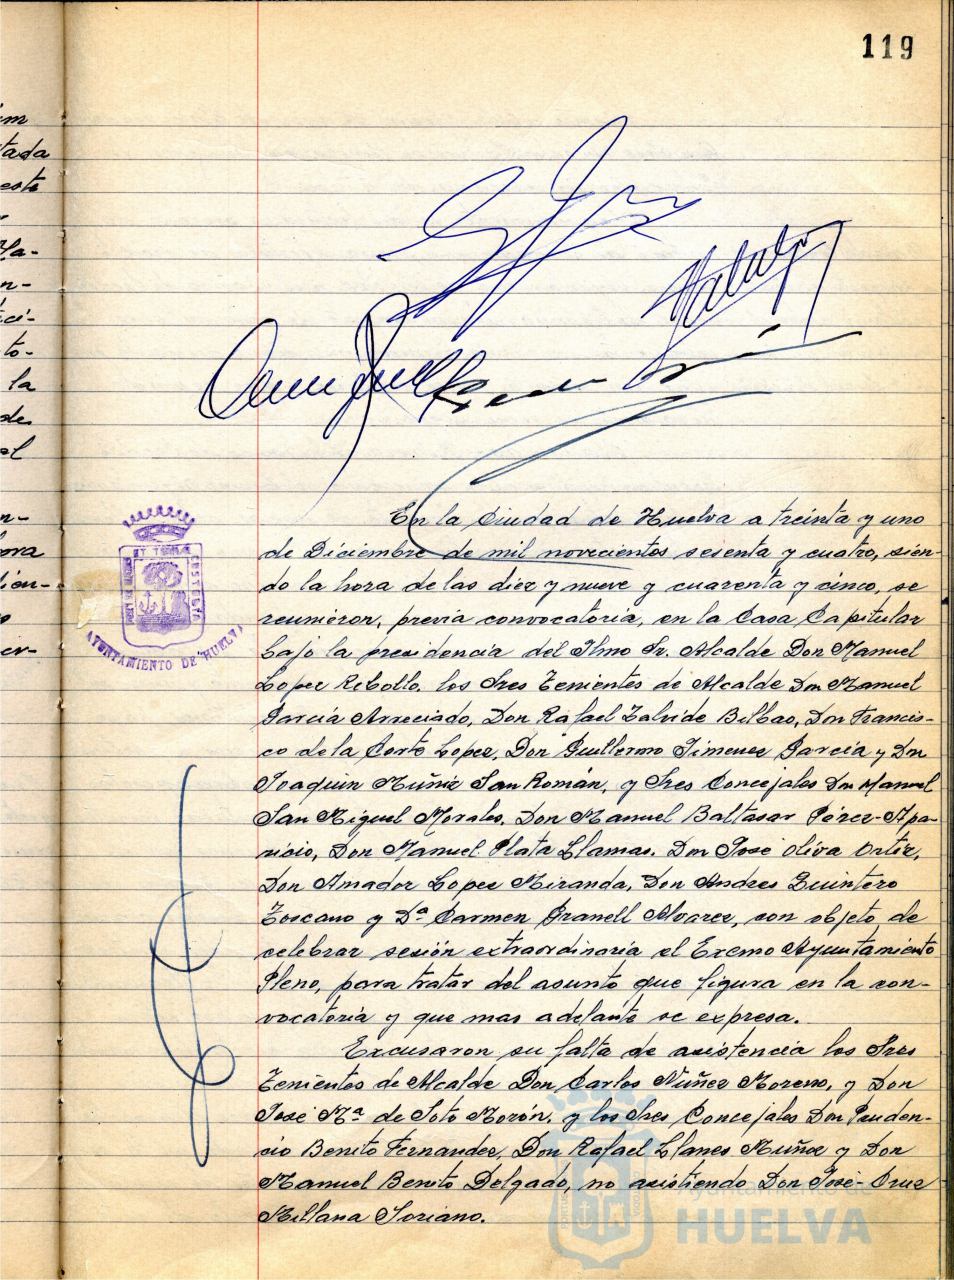 119
im
tada
este
Ma-
n-
ici-
to-
la
de
el
n-
ora
ien-
o
er-
En la Ciudad de Huelva a treinta y uno
de Diciembre de mil novecientos sesenta y cuatro, sien-
do la hora de las diez y nueve y cuarenta y cinco, se
reunieron, previa convocatoria, en la Casa Capitular
bajo la presidencia del Ilmo Sr. Alcalde Don Manuel
Lopez Rebollo, los Sres Tenientes de Alcalde Don Manuel
García Arreciado, Don Rafael Zalvide Bilbao, Don Francis-
co de la Corte Lopez, Don Guillermo Jimenez García y Don
Joaquin Muñiz San Román, y Sres Concejales Don Manuel
San Miguel Morales, Don Manuel Baltasar Pérez-Apa-
ricio, Don Manuel Plata Llamas. Don José Oliva Ortiz,
Don Amador Lopez Miranda, Don Andres Quintero
Toscano y Dª Carmen Granell Alvarez, con objeto de
celebrar sesión extraordinaria el Excmo Ayuntamiento
Pleno, para tratar del asunto que figura en la con-
vocatoria y que mas adelante se expresa.
Excusaron su falta de asistencia los Sres
Tenientes de Alcalde Don Carlos Nuñez Moreno, y Don
José Mª de Soto Morón, y los Sres Concejales Don Pruden-
cio Benito Fernandez, Don Rafael Llanes Muñoz y Don
Manuel Benito Delgado, no asistiendo Don José-Cruz
Millana Soriano.
AYUNTAMIENTO DE HUELVA
Ayuntamiento de
HUELVA